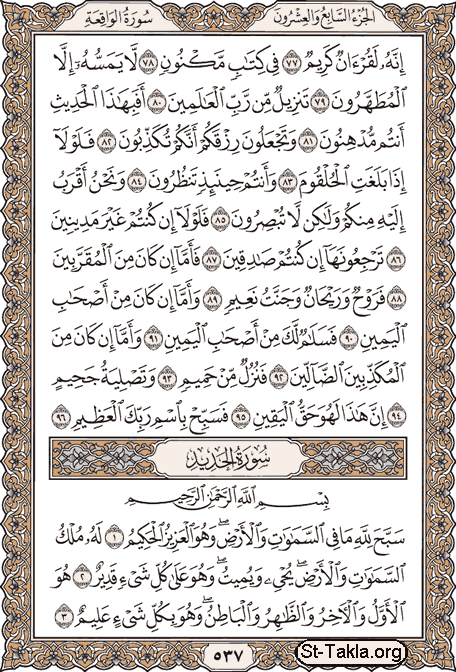 سورة الواقعة الجزء السابع والعشرون
إِنَّهُۥ لَقُرْءَانٌ كَرِيمٌ ٧٧ فِى كِتَٰبٍ مَّكْنُونٍ ٧٨ لَّا يَمَسُّهُۥٓ إِلَّا
ٱلْمُطَهَّرُونَ ٧٩ تَنزِيلٌ مِّن رَّبِّ ٱلْعَٰلَمِينَ ٨٠ أَفَبِهَٰذَا ٱلْحَدِيثِ
أَنتُم مُّدْهِنُونَ ٨١ وَتَجْعَلُونَ رِزْقَكُمْ أَنَّكُمْ تُكَذِّبُونَ ٨٢ فَلَوْلَآ
إِذَا بَلَغَتِ ٱلْحُلْقُومَ ٨٣ وَأَنتُمْ حِينَئِذٍ تَنظُرُونَ ٨٤ وَنَحْنُ أَقْرَبُ
إِلَيْهِ مِنكُمْ وَلَٰكِن لَّا تُبْصِرُونَ ٨٥ فَلَوْلَآ إِن كُنتُمْ غَيْرَ مَدِينِينَ
٨٦ تَرْجِعُونَهَآ إِن كُنتُمْ صَٰدِقِينَ ٨٧ فَأَمَّآ إِن كَانَ مِنَ ٱلْمُقَرَّبِينَ
٨٨ فَرَوْحٌ وَرَيْحَانٌ وَجَنَّتُ نَعِيمٍ ٨٩ وَأَمَّآ إِن كَانَ مِنْ أَصْحَٰبِ
ٱلْيَمِينِ ٩٠ فَسَلَٰمٌ لَّكَ مِنْ أَصْحَٰبِ ٱلْيَمِينِ ٩١ وَأَمَّآ إِن كَانَ مِنَ
ٱلْمُكَذِّبِينَ ٱلضَّآلِّينَ ٩٢ فَنُزُلٌ مِّنْ حَمِيمٍ ٩٣ وَتَصْلِيَةُ جَحِيمٍ
٩٤ إِنَّ هَٰذَا لَهُوَ حَقُّ ٱلْيَقِينِ ٩٥ فَسَبِّحْ بِٱسْمِ رَبِّكَ ٱلْعَظِيمِ ٩٦
سورة الحديد
بِسْمِ ٱللَّهِ ٱلرَّحْمَٰنِ ٱلرَّحِيمِ
سَبَّحَ لِلَّهِ مَا فِى ٱلسَّمَٰوَٰتِ وَٱلْأَرْضِ ۖ وَهُوَ ٱلْعَزِيزُ ٱلْحَكِيمُ ١ لَهُۥ مُلْكُ
ٱلسَّمَٰوَٰتِ وَٱلْأَرْضِ ۖ يُحْىِۦ وَيُمِيتُ ۖ وَهُوَ عَلَىٰ كُلِّ شَىْءٍ قَدِيرٌ ٢ هُوَ
ٱلْأَوَّلُ وَٱلْءَاخِرُ وَٱلظَّٰهِرُ وَٱلْبَاطِنُ ۖ وَهُوَ بِكُلِّ شَىْءٍ عَلِيمٌ ٣
٥٣٧
St-Takla.org